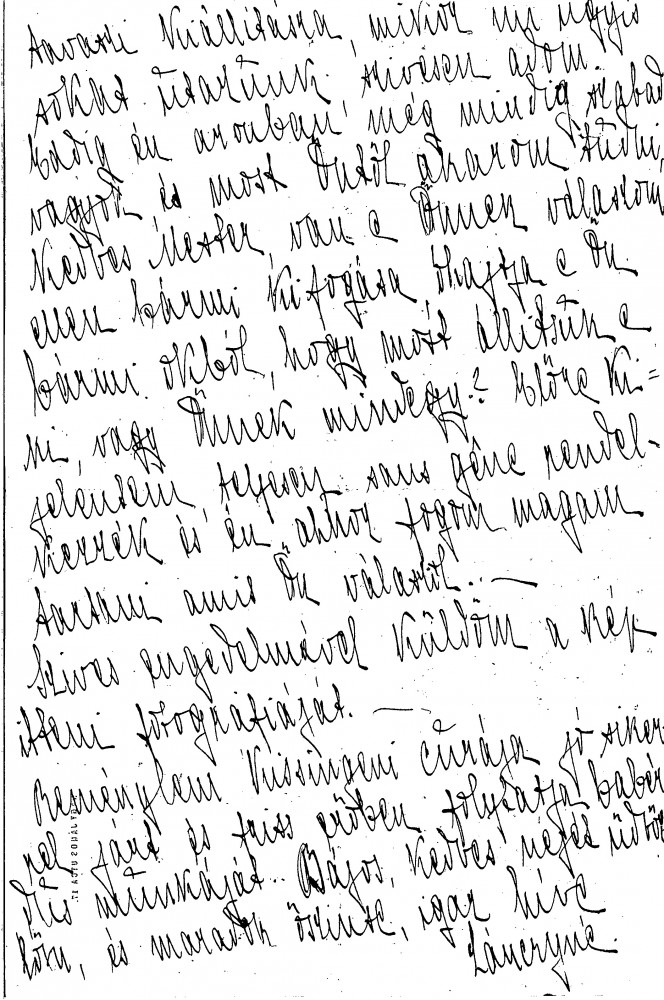 tavaszi kiállításra, mikor mi úgyis
sokat utazunk, szivesen adom.
Eddig én azonban, még mindig szabad
vagyok és most Öntől akarom tudni,
Kedves Mester, van e Önnek válaszom
ellen bármi kifogása, óhajtja e Ön
bármi okból, hogy most állitsuk e
ki, vagy Önnek mindegy? Előre ki=
jelentem, teljesen sans gêne rendel-
kezzék és én ahhoz fogom magam
tartani amit Ön válaszol. . —
Szives engedelmével küldöm a kép
itteni fotografiáját. —
Reménylem Kissingeni curája jó siker-
rel járt és friss erőben folytatja babér
dús munkáját. Bájos, kedves nejét üdvöz
löm, és maradok őszinte, igaz híve
Lánczyné.